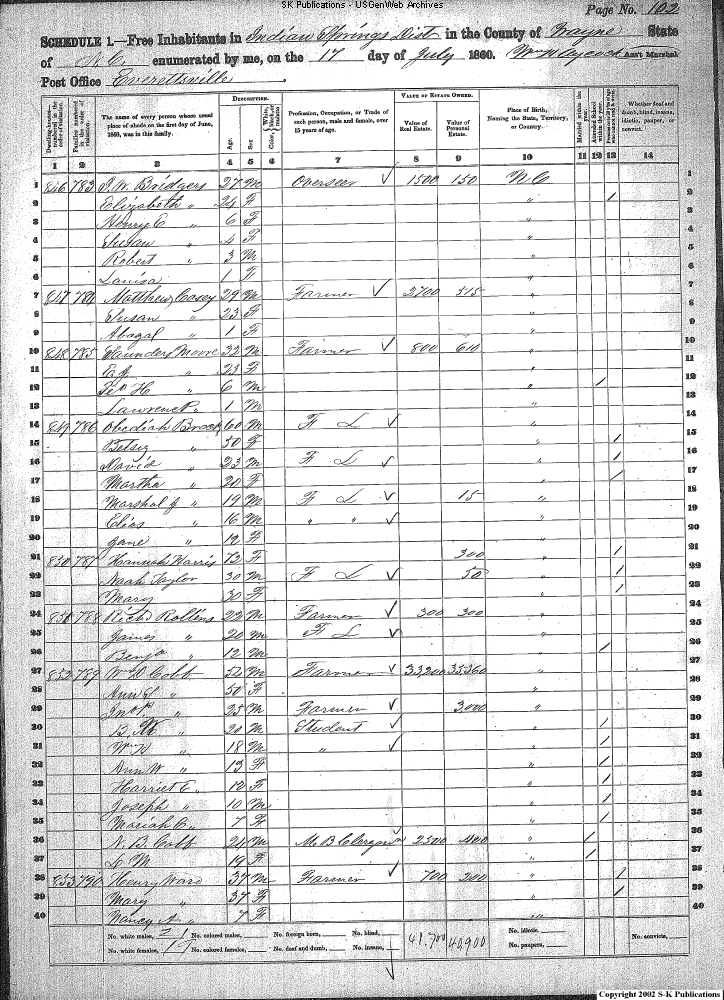 SK Publications - USGenWeb Archives
Page No. 102
SCHEDULE 1.—Free Inhabitants in Indian Springs Dist in the County of Wayne State
of N.C. enumerated by me, on the 17 day of July 1860. Wm H Aycock Ass't Marshal
Post Office Everettsville
Dwelling-houses—numbered in the order of visitation.
Families numbered in the order of visitation.
The name of every person whose usual place of abode on the first day of June, 1860, was in this family.
DESCRIPTION.
Age.
Sex.
Color, White, black, or mulatto.
Profession, Occupation, or Trade of each person, male and female, over 15 years of age.
VALUE OF ESTATE OWNED.
Value of Real Estate.
Value of Personal Estate.
Place of Birth, Naming the State, Territory, or Country.
Married within the year.
Attended School within the year.
Whether deaf and dumb, blind, insane, idiotic, pauper, or convict.
1 2 3 4 5 6 7 8 9 10 11 12 13 14
1 846 783 J. W. Bridgers 27 M Overseer ✓ 1500 150 N.C 1
2 Elizabeth " 24 F " / 2
3 Henry E " 6 F 3
4 Susan " 4 F " 4
5 Robert " 3 M " 5
6 Louisa 1 F " 6
7 847 784 Matthew Casey 29 M Farmer ✓ 2700 515 " 7
8 Susan " 23 F " 8
9 Abagal " 1 F " 9
10 848 785 Saunders Moore 32 M Farmer ✓ 800 610 " 10
11 " 23 F " 11
12 Geo H " 6 M " / 12
13 Lawrence " 1 M " 13
14 849 786 Obediah Brock 60 M F L ✓ " 14
15 Betsey " 50 F " / 15
16 David " 23 M F L ✓ " / 16
17 Martha " 20 F " / 17
18 Marshal J " 19 M F L ✓ 15 " 18
19 Elias " 16 M " " ✓ " 19
20 Jane " 12 F " 20
21 850 787 Hannah Harris 72 F 300 " / 21
22 Noah Taylor 30 M F L ✓ 50 " / 22
23 Mary 30 F " / 23
24 851 788 Richd Rollins 22 M Farmer ✓ 300 300 " 24
25 James " 20 M F L ✓ " 25
26 Benja " 12 M " / 26
27 852 789 Wm D Cobb 52 M Farmer ✓ 33,200 35,360 " 27
28 Ann S " 50 F " 28
29 Jno P " 25 M Farmer ✓ 3,000 " 29
30 " 20 M Student ✓ " / 30
31 " 18 M " ✓ " / 31
32 Ann W " 13 F " / 32
33 Harriet E " 12 F " / 33
34 Joseph " 10 M " / 34
35 Mariah C " 7 F " / 35
36 N. B. Cobb 24 M M B Clergym ✓ 2500 400 " / 36
37 L M 19 F " / 37
38 853 790 Henry Ward 37 M Farmer ✓ 700 200 " / 38
39 Mary " 37 F " / 39
40 Nancy A " 7 F " 40
No. white males, 21 No. colored males, No. foreign born, No. blind, 41,700 40,900 No. idiotic, No. convicts,
No. white females, 19 No. colored females, No. deaf and dumb, No. insane, No. paupers,
Copyright 2002 S-K Publications